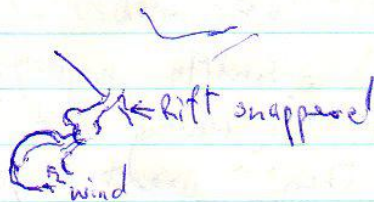 Rift snappered
wind